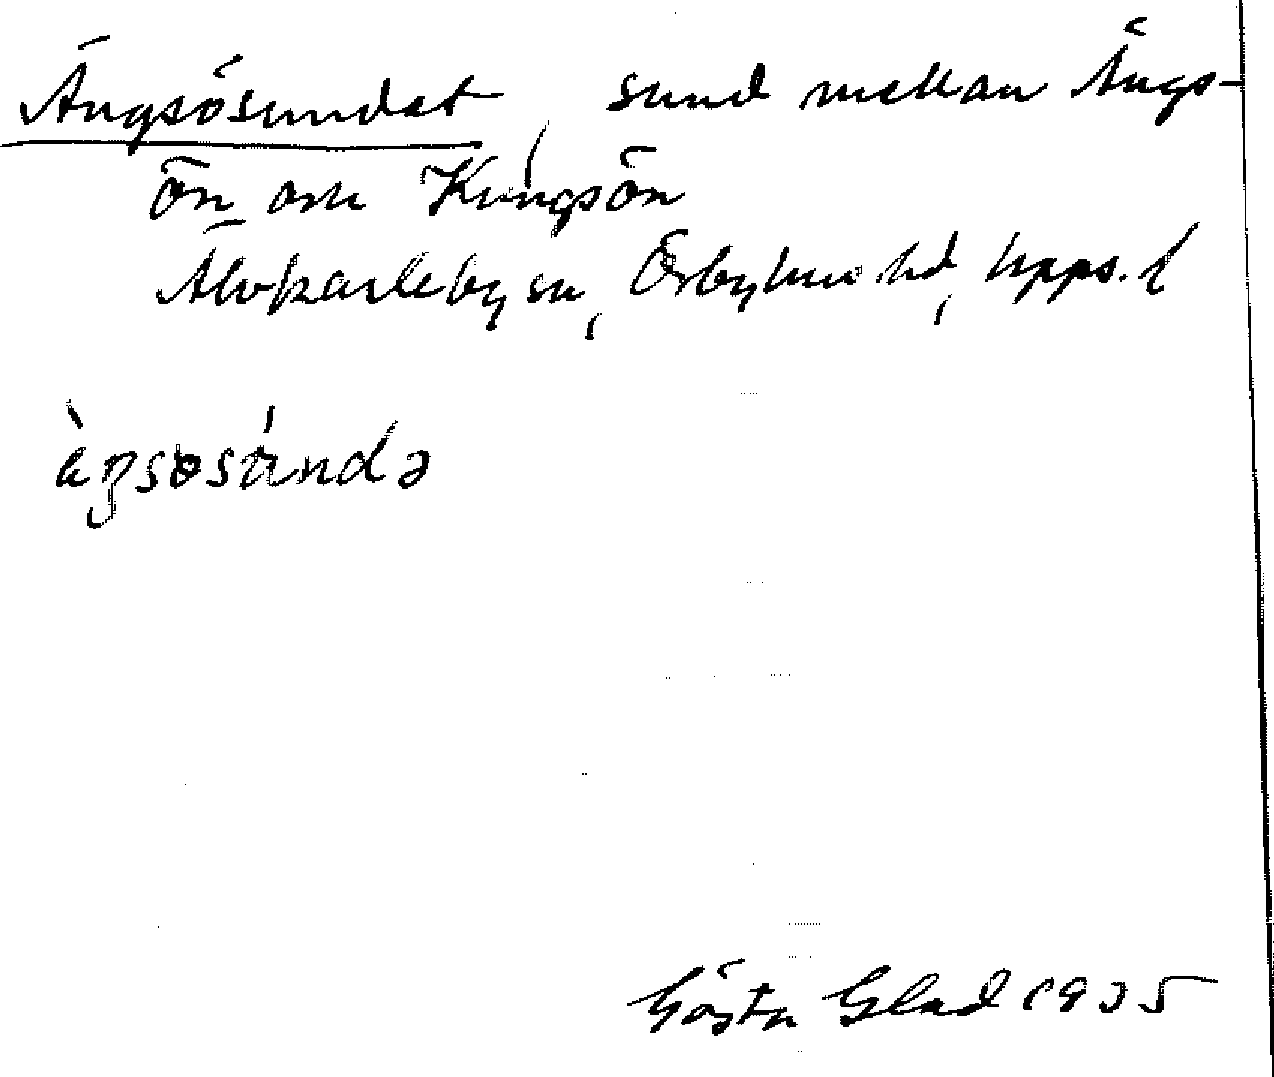 Ängsösundet, sund mellan Ängs-
ön och Kungsön
Älvkarleby sn, Örbyhus hd, Upps. l
Gösta Glad 1935